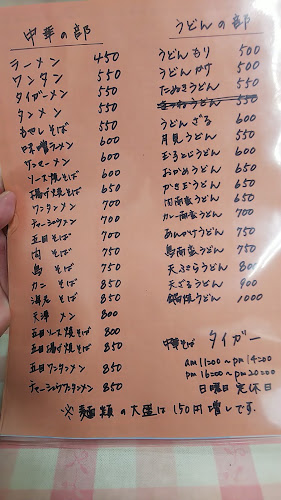 中華の部
ラーメン 450
ワンタン 550
タイガーメン 550
タンメン 550
もやしそば 550
味噌ラメン 600
ワンセーメン 600
ソース焼そば 600
揚げ焼そば 650
ワンタンメン 700
チャーシューメン 700
五目そば 700
肉そば 750
鳥そば 750
カニそば 850
海老そば 850
天津メン 800
五目ソース焼そば 800
五目揚げ焼そば 850
五目ワンタンメン 850
チャーシューワンタンメン 850
うどんの部
うどんもり 500
うどんかけ 500
たぬきうどん 550
きつねうどん 550
うどんざる 600
月見うどん 550
玉子とじうどん 600
おかめうどん 650
かき玉うどん 650
肉南蛮うどん 650
カレー南蛮うどん 700
あんかけうどん 750
鳥南蛮うどん 750
天ぷらうどん 800
天ざるうどん 900
鍋焼うどん 1000
中華そば タイガー
am11:00〜pm14:00
pm16:00〜pm20:00
日曜日 定休日
※麺類の大盛は150円増しです。